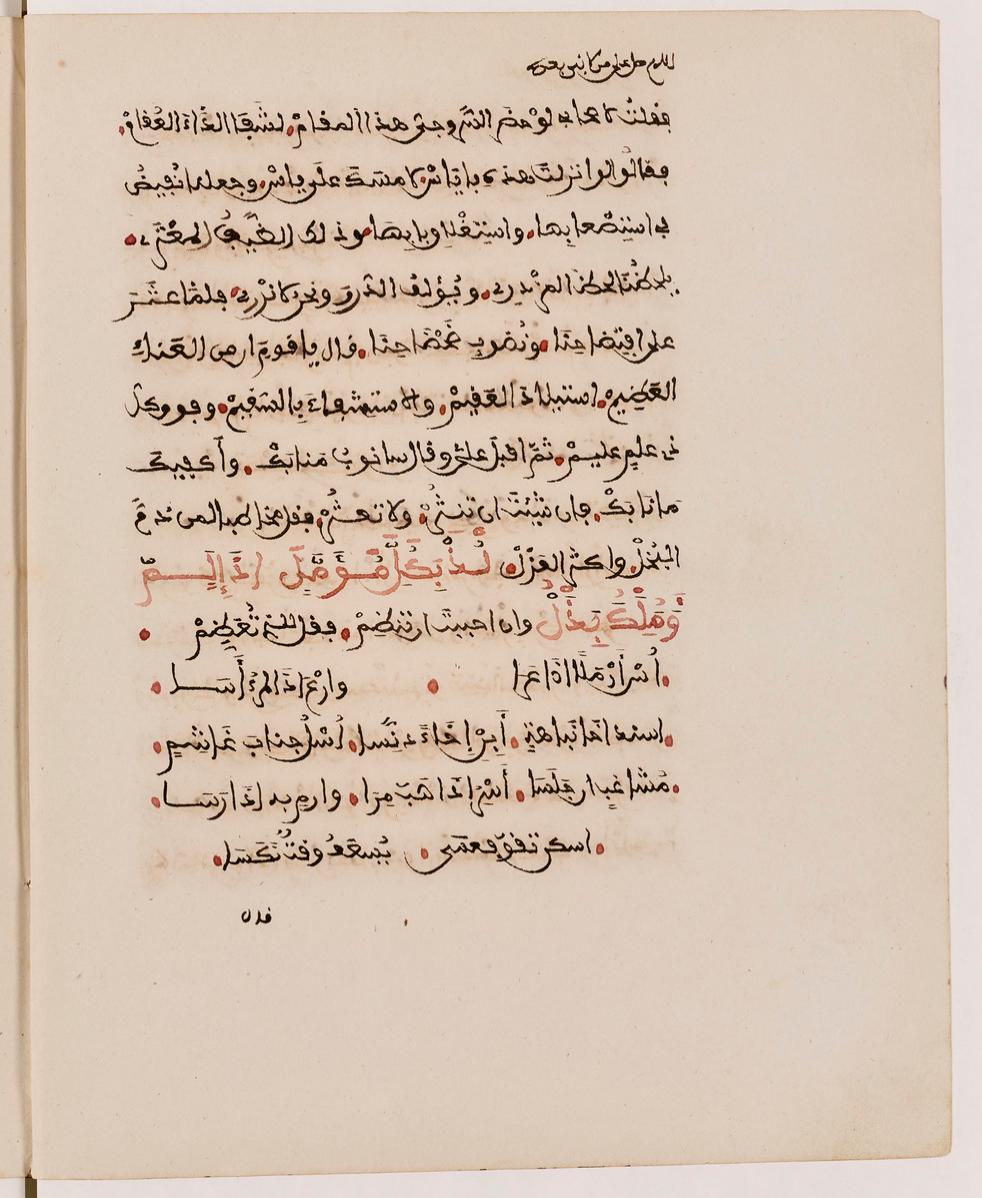 اللهم صل على من لا نبي بعده
فقلت لاصحابي لو حضر السروجي هذا المقام لشفا الداء العقام
فقالوا لو انزلت هذه باياس لامسك على ياس وجعلنا نفيض
في استصعابها واستغلاق بابها وذلك الضيف المعترى
يلحظنا لحظ المزدرى ويؤلف الدرر ونحن لا ندرى فلما عثر
على افتضاحنا ونضوب ضحضاحنا قال يا قوم ان من العناء
العظيم استيلاد العقيم والاستشفاء بالسقيم وفوق كل
ذى علم عليم ثم اقبل علي وقال سانوب منابك وأكفيك
ما نابك فان شئت ان تنثر ولا تعثر فقل مخاطبا لمن ذم
البخل واكثر العذل لُذْ بِكُلِّ مُؤَمَّلٍ اذا لم
وملك بذل وان احببت ان تنظم فقل للذى تعظم
أس أرملا اذا عرا وارع اذا المرء أسا
اسند اخا نباهة أبن إخاء دنسا أسل جناب غاشم
مشاغب ان جلسا أسر اذا هب مرا وارم به اذا رسا
اسكن تقو فعسى يسعف وقت نكسا
قال